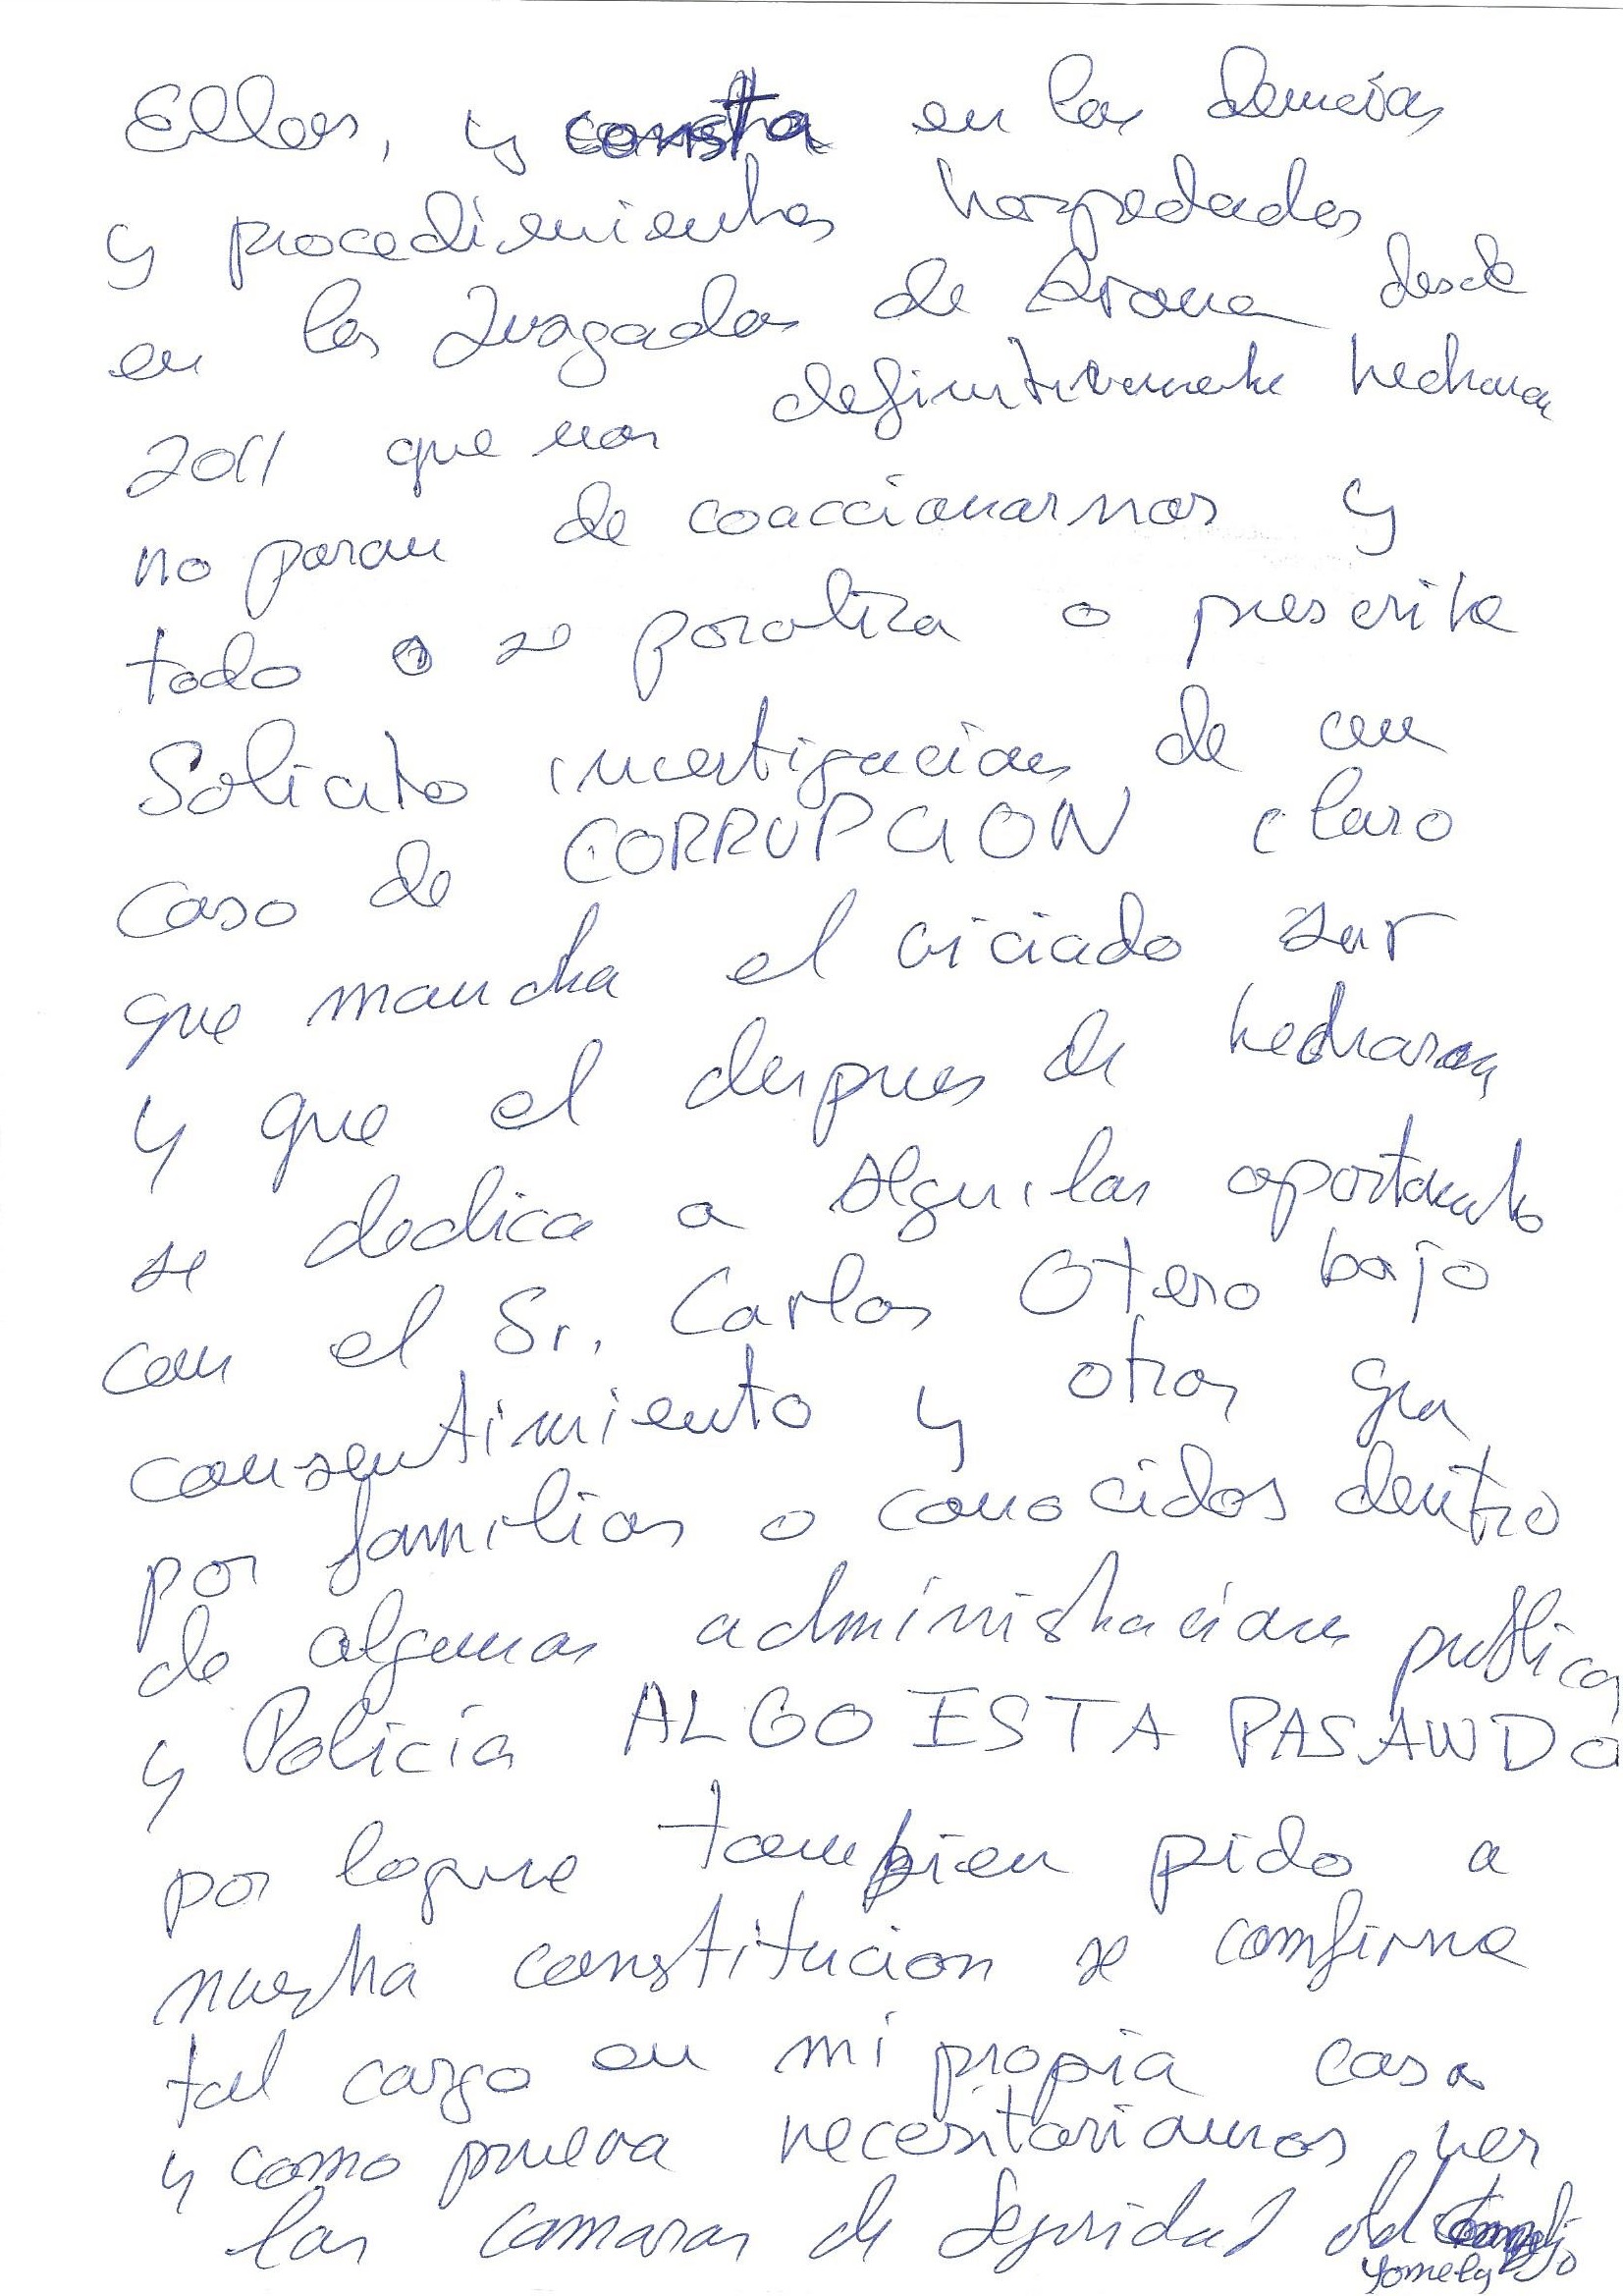 Ellos, y consta en las demcias
y procedimientos hospedados
en los Juzgados de Arona desde
2011 que nos definitivamente hecharon
no paran de coaccionarnos y
todo o se paraliza o prescrite
Solicito investigacion de un
caso de CORRUPCION claro
que mancha el viciado sur
y que el despues de hecharon
se dedica a Alguilar apartamento
con el Sr. Carlos Otero bajo
consentimiento y otros
por familias o conocidos dentro
de algunas administraciones publicas
y Policia ALGO ESTA PASANDO
por loque tambien pido a
nuestra constitucion se comfirme
tal cargo en mi propia casa
y como prueva necesitariamos ver
las camaras de Seguridad del